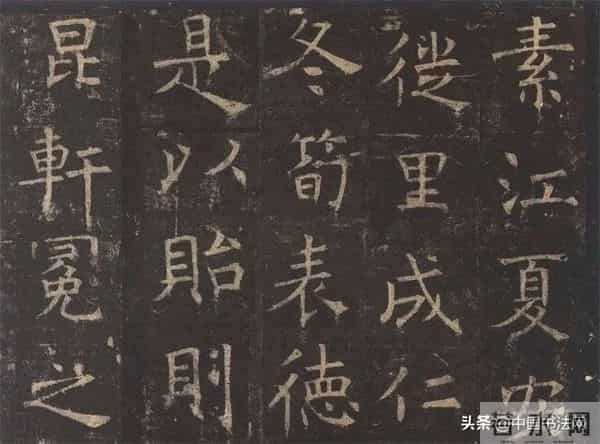 素江夏
徙里成仁
冬筍表德
是以貽則
昆軒冕之
头条@中国书法网